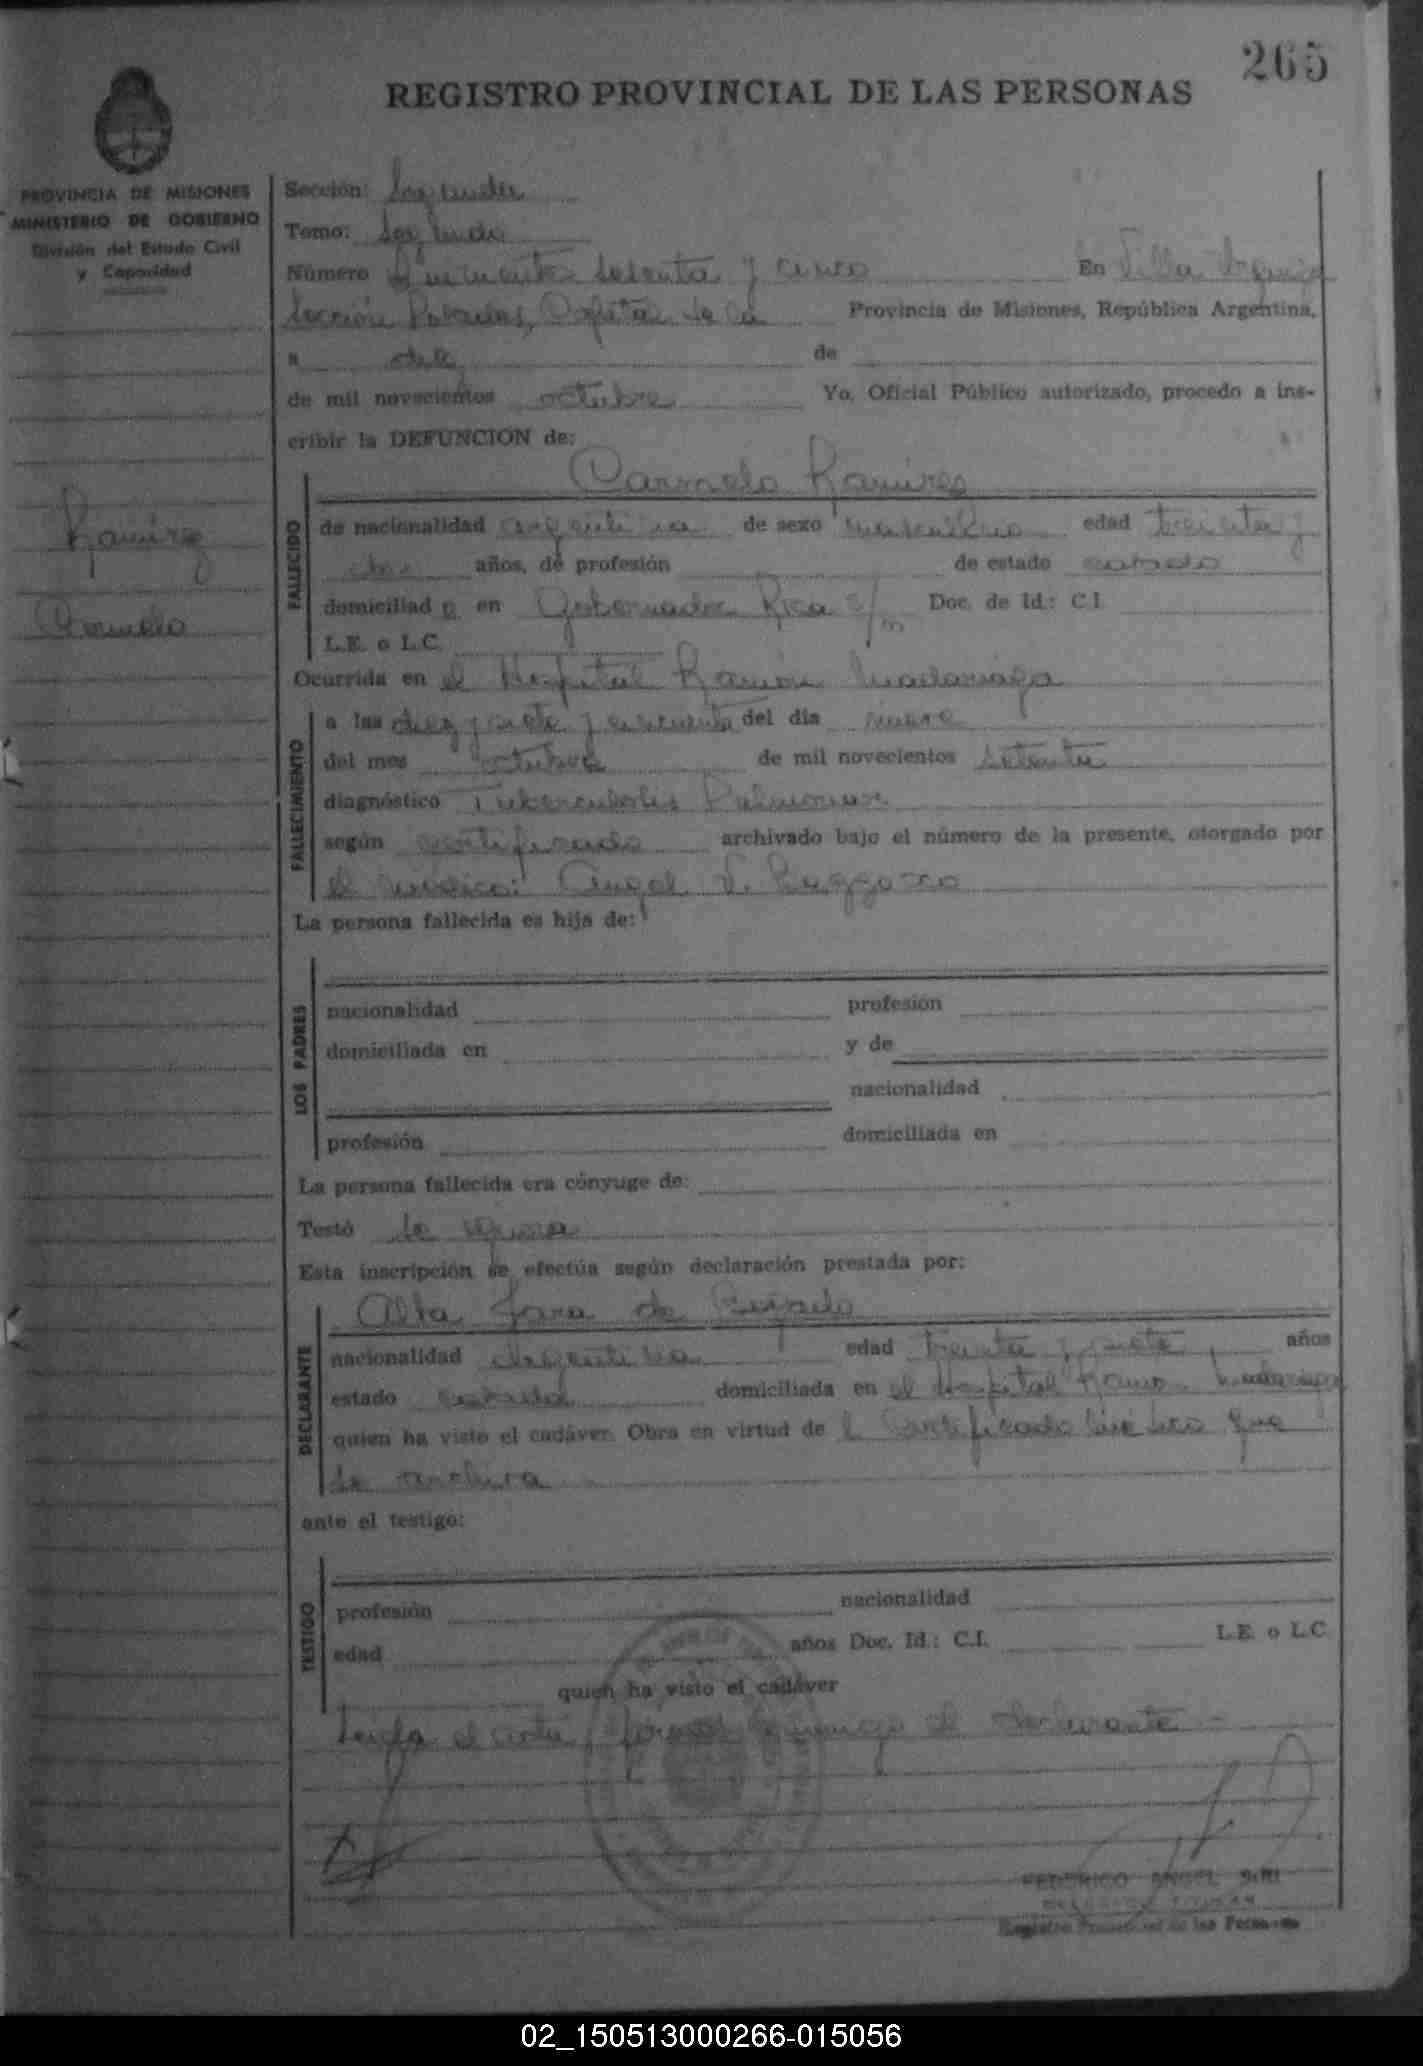 265
REGISTRO PROVINCIAL DE LAS PERSONAS
PROVINCIA DE MISIONES
MINISTERIO DE GOBIERNO
División del Estado Civil
y Capacidad
Sección: Segunda
Tomo: Segundo
Número sesenta y cinco En Villa
Sección Posadas, Capital de la Provincia de Misiones, República Argentina,
a de
de mil novecientos octubre Yo, Oficial Público autorizado, procedo a ins-
cribir la DEFUNCION de:
Carmelo Ramires
Ramirez
Carmelo
FALLECIDO
de nacionalidad argentina de sexo masculino edad treinta y
años, de profesión de estado casado
domiciliad o en Gobernador Roca s/n Doc. de Id.: C.I.
L.E. o L.C.
Ocurrida en el Hospital Ramón Madariaga
FALLECIMIENTO
a las diez y siete y cincuenta del día nueve
del mes octubre de mil novecientos setenta
diagnóstico Tuberculosis Pulmonar
según certificado archivado bajo el número de la presente, otorgado por
el médico: Angel V.
La persona fallecida es hija de:
LOS PADRES
nacionalidad profesión
domiciliada en y de
nacionalidad
profesión domiciliada en
La persona fallecida era cónyuge de:
Testó se ignora
Esta inscripción se efectúa según declaración prestada por:
DECLARANTE
Alta Jara de
nacionalidad argentina edad treinta y siete años
estado casada domiciliada en el Hospital Ramón Madariaga
quien ha visto el cadáver. Obra en virtud de l Certificado médico que
se archiva
ante el testigo:
TESTIGO
profesión nacionalidad
edad años Doc. Id.: C.I. L.E. o L.C.
quien ha visto el cadáver
Leída el acta, firma conmigo el declarante -
FEDERICO ANGEL
Registro Provincial de las Personas
02_150513000266-015056